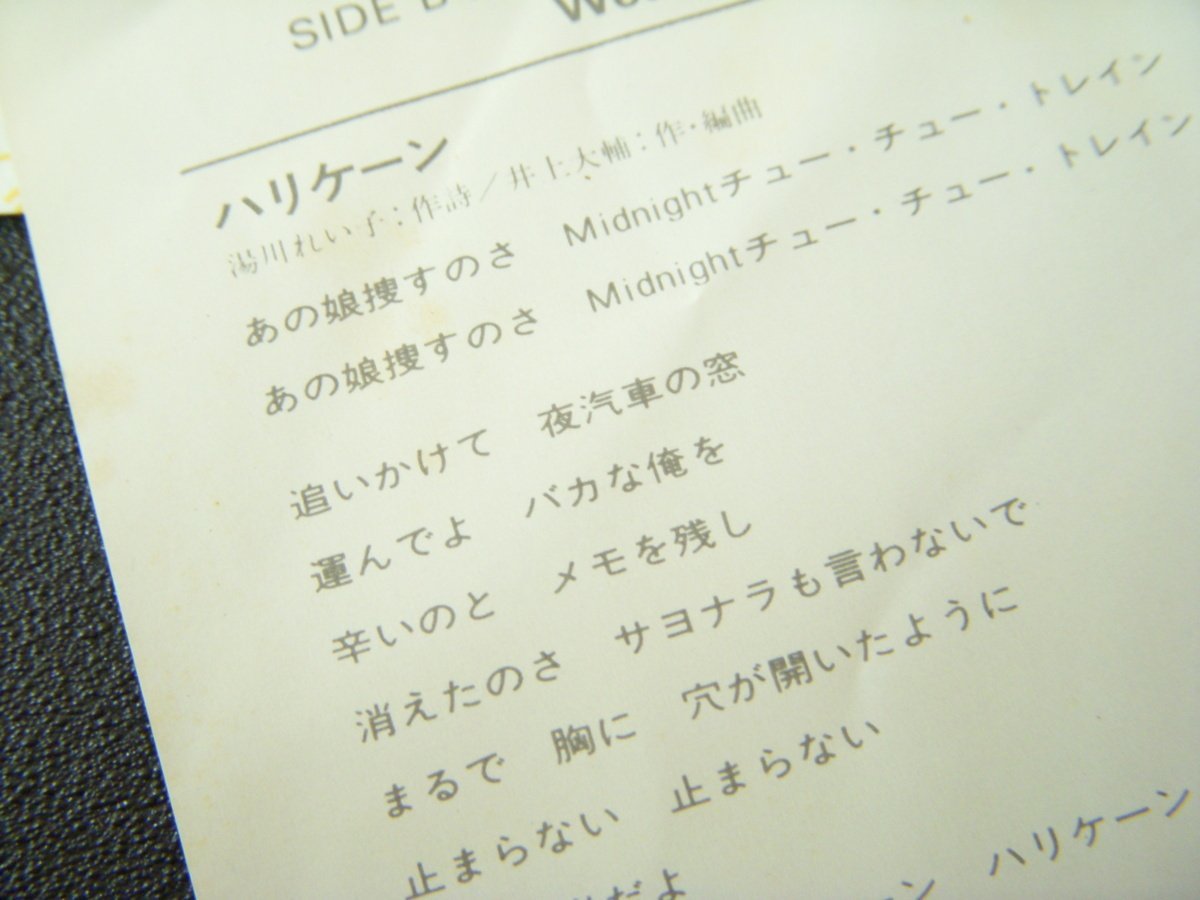 SIDE B
ハリケーン
湯川れい子：作詩／井上大輔：作・編曲
あの娘捜すのさ　Midnightチュー・チュー・トレイン
あの娘捜すのさ　Midnightチュー・チュー・トレイン
追いかけて　夜汽車の窓
運んでよ　バカな俺を
辛いのと　メモを残し
消えたのさ　サヨナラも言わないで
まるで　胸に　穴が開いたように
止まらない　止まらない
だよ　ーン　ハリケーン